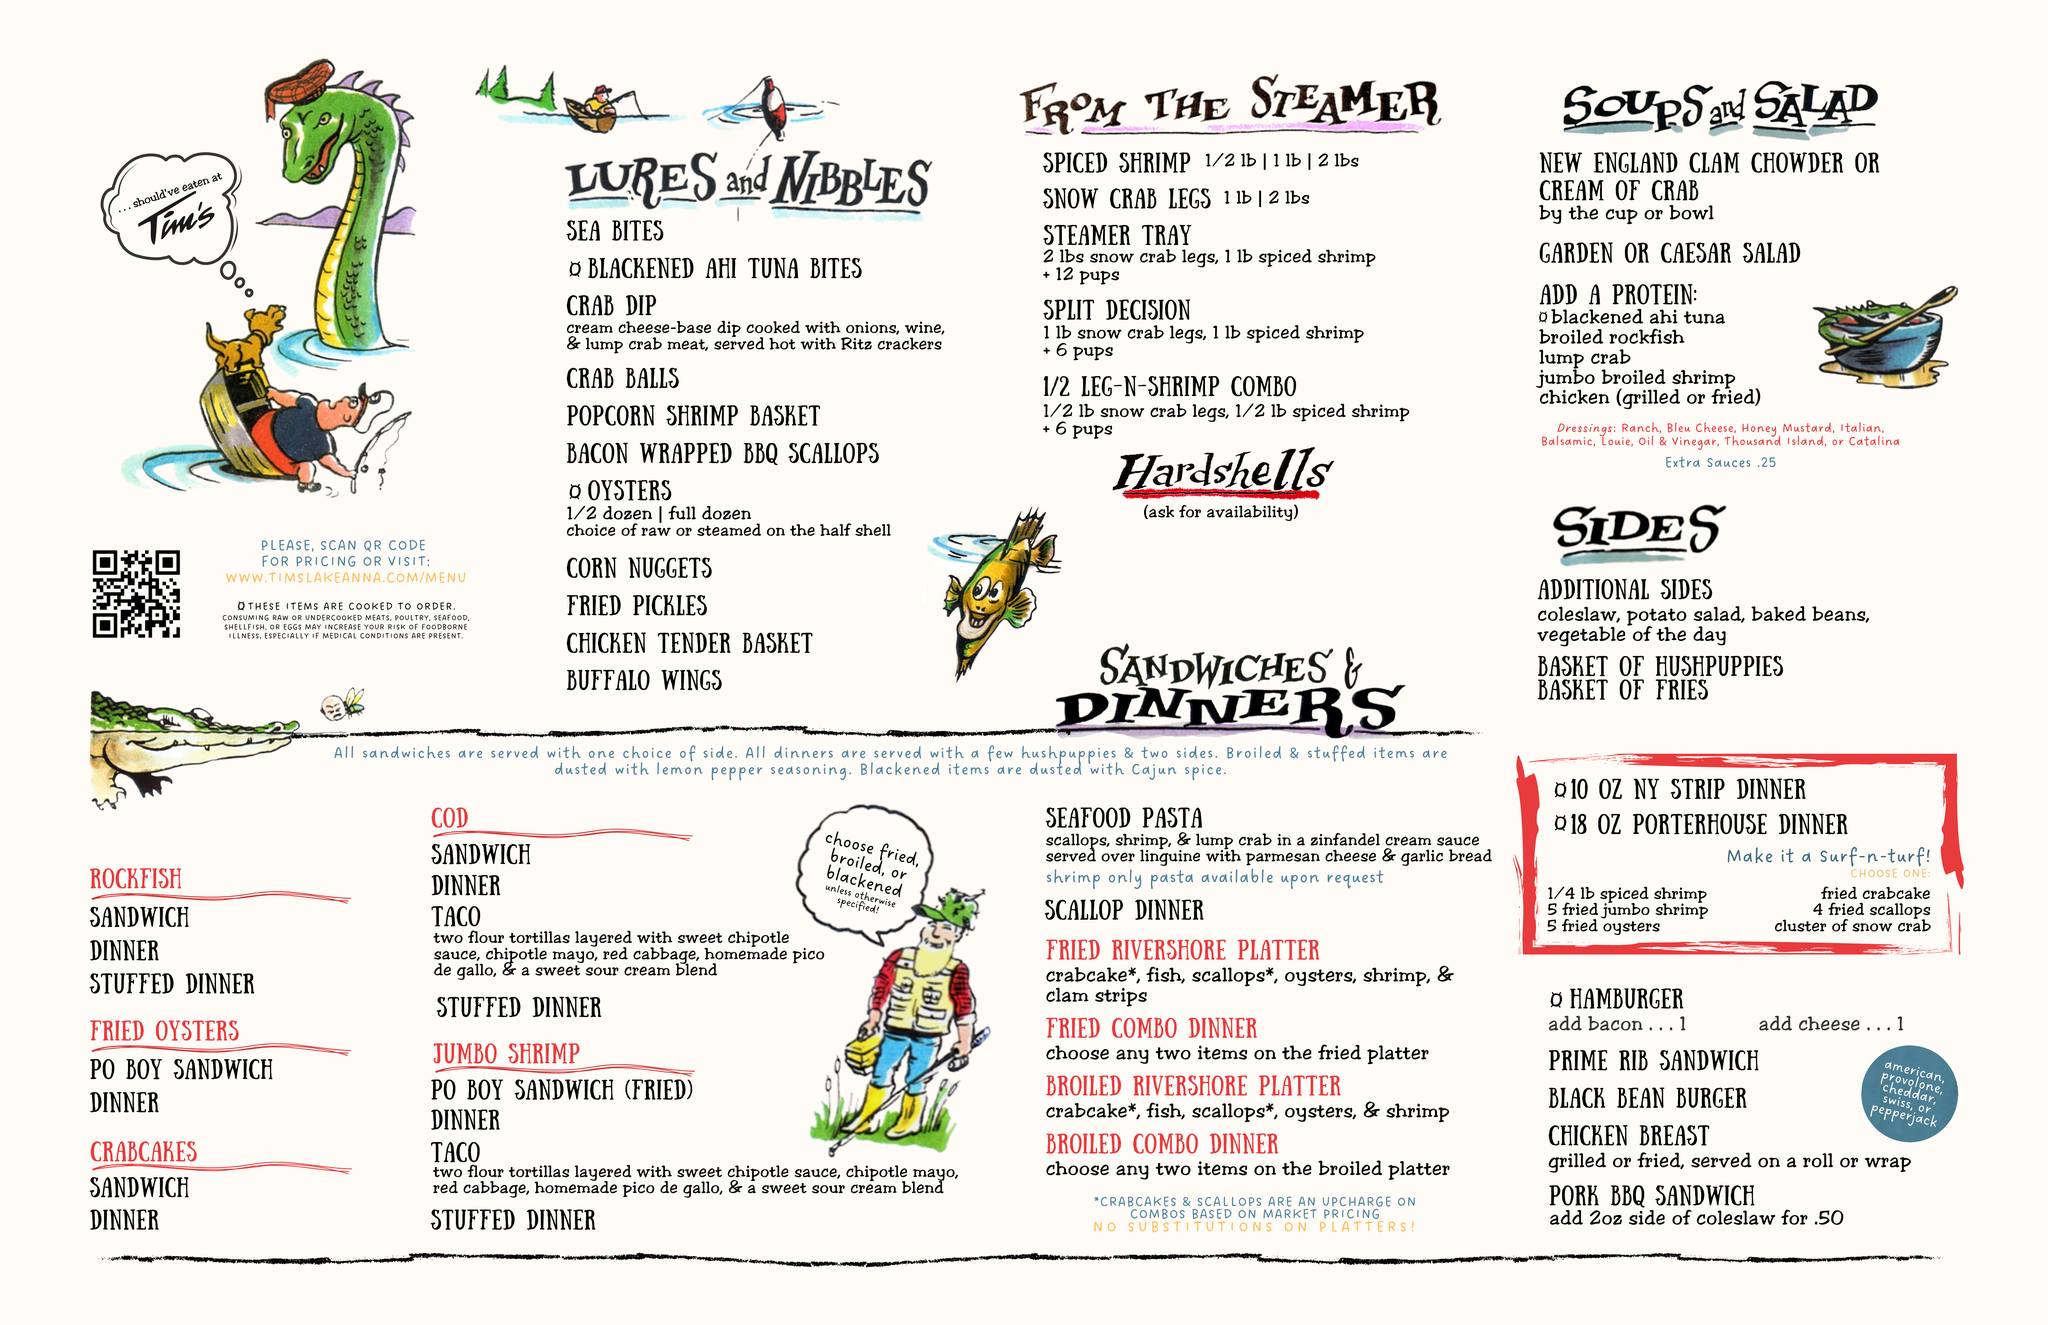 ...should've eaten at
Tim's
PLEASE, SCAN QR CODE
FOR PRICING OR VISIT:
WWW.TIMSLAKEANNA.COM/MENU
¤THESE ITEMS ARE COOKED TO ORDER.
CONSUMING RAW OR UNDERCOOKED MEATS, POULTRY, SEAFOOD,
SHELLFISH, OR EGGS MAY INCREASE YOUR RISK OF FOODBORNE
ILLNESS, ESPECIALLY IF MEDICAL CONDITIONS ARE PRESENT.
LURES and NIBBLES
SEA BITES
¤ BLACKENED AHI TUNA BITES
CRAB DIP
cream cheese-base dip cooked with onions, wine,
& lump crab meat, served hot with Ritz crackers
CRAB BALLS
POPCORN SHRIMP BASKET
BACON WRAPPED BBQ SCALLOPS
¤ OYSTERS
1/2 dozen | full dozen
choice of raw or steamed on the half shell
CORN NUGGETS
FRIED PICKLES
CHICKEN TENDER BASKET
BUFFALO WINGS
FROM THE STEAMER
SPICED SHRIMP 1/2 lb | 1 lb | 2 lbs
SNOW CRAB LEGS 1 lb | 2 lbs
STEAMER TRAY
2 lbs snow crab legs, 1 lb spiced shrimp
+ 12 pups
SPLIT DECISION
1 lb snow crab legs, 1 lb spiced shrimp
+ 6 pups
1/2 LEG-N-SHRIMP COMBO
1/2 lb snow crab legs, 1/2 lb spiced shrimp
+ 6 pups
Hardshells
(ask for availability)
SOUPS and SALAD
NEW ENGLAND CLAM CHOWDER OR
CREAM OF CRAB
by the cup or bowl
GARDEN OR CAESAR SALAD
ADD A PROTEIN:
¤blackened ahi tuna
broiled rockfish
lump crab
jumbo broiled shrimp
chicken (grilled or fried)
Dressings: Ranch, Bleu Cheese, Honey Mustard, Italian,
Balsamic, Louie, Oil & Vinegar, Thousand Island, or Catalina
Extra Sauces .25
SIDES
ADDITIONAL SIDES
coleslaw, potato salad, baked beans,
vegetable of the day
BASKET OF HUSHPUPPIES
BASKET OF FRIES
SANDWICHES &
DINNERS
All sandwiches are served with one choice of side. All dinners are served with a few hushpuppies & two sides. Broiled & stuffed items are
dusted with lemon pepper seasoning. Blackened items are dusted with Cajun spice.
ROCKFISH
SANDWICH
DINNER
STUFFED DINNER
FRIED OYSTERS
PO BOY SANDWICH
DINNER
CRABCAKES
SANDWICH
DINNER
COD
SANDWICH
DINNER
TACO
two flour tortillas layered with sweet chipotle
sauce, chipotle mayo, red cabbage, homemade pico
de gallo, & a sweet sour cream blend
STUFFED DINNER
JUMBO SHRIMP
PO BOY SANDWICH (FRIED)
DINNER
TACO
two flour tortillas layered with sweet chipotle sauce, chipotle mayo,
red cabbage, homemade pico de gallo, & a sweet sour cream blend
STUFFED DINNER
choose fried,
broiled, or
blackened
unless otherwise
specified!
SEAFOOD PASTA
scallops, shrimp, & lump crab in a zinfandel cream sauce
served over linguine with parmesan cheese & garlic bread
shrimp only pasta available upon request
SCALLOP DINNER
FRIED RIVERSHORE PLATTER
crabcake*, fish, scallops*, oysters, shrimp, &
clam strips
FRIED COMBO DINNER
choose any two items on the fried platter
BROILED RIVERSHORE PLATTER
crabcake*, fish, scallops*, oysters, & shrimp
BROILED COMBO DINNER
choose any two items on the broiled platter
*CRABCAKES & SCALLOPS ARE AN UPCHARGE ON
COMBOS BASED ON MARKET PRICING
NO SUBSTITUTIONS ON PLATTERS!
¤10 OZ NY STRIP DINNER
¤18 OZ PORTERHOUSE DINNER
Make it a Surf-n-turf!
CHOOSE ONE:
1/4 lb spiced shrimp fried crabcake
5 fried jumbo shrimp 4 fried scallops
5 fried oysters cluster of snow crab
¤ HAMBURGER
add bacon . . . 1 add cheese . . . 1
PRIME RIB SANDWICH
BLACK BEAN BURGER
CHICKEN BREAST
grilled or fried, served on a roll or wrap
PORK BBQ SANDWICH
add 2oz side of coleslaw for .50
american,
provolone,
cheddar,
swiss, or
pepperjack